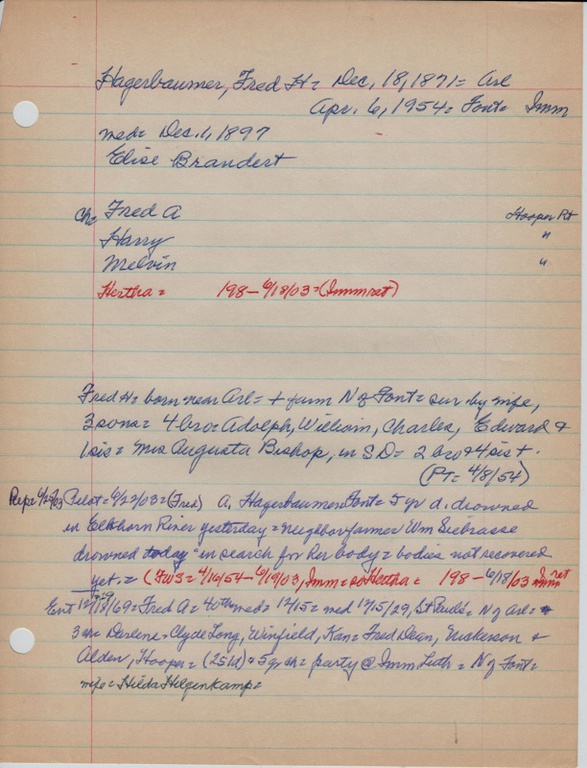 Hagerbaumer, Fred H = Dec. 18, 1871 = Arl
Apr. 6, 1954 = Font = Imm
med = Dec. 1, 1897
Elise Brandert
ch = Fred A Hooper Rt
Harry "
Melvin "
Hertha = 198 - 6/18/03 = (Imm ret)
Fred H = born near Arl = + farm N of Font = sur by wife,
3 sons = 4 bro = Adolph, William, Charles, Edward +
1 sis = Mrs Augusta Bishop, in SD = 2 bro + 4 sis +.
(PT = 4/8/54)
Pilot = 6/22/03 = (Fred) A. Hagerbaumer, Font = 5 yr d. drowned
in Elkhorn River yesterday = neighbor farmer Wm Siebrasse
drowned today in search for her body = bodies not recovered
yet. = (FW3 = 4/16/54 - 6/19/03, Imm = Hertha = 198 - 6/18/03 Imm ret
Ent 12/18/69 = Fred A = 40th med = 12/15 = med 12/15/29, St Pauls = N of Arl =
3 ch Darlene = Clyde Long, Winfield, Kan = Fred Dean, Nickerson +
Alden, Hooper = (25 yd) + 5 g ch = party @ Imm Luth = N of Font =
wife = Hilda Hilgenkamp =